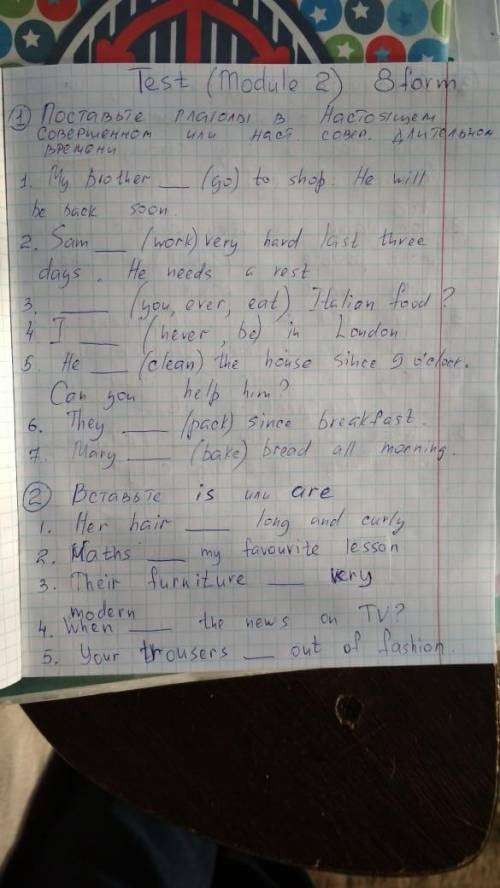 Test (Module 2) 8 form
1 Поставьте глаголы в Настоящем
совершенном или наст совер. длительном
времени
1. My brother __ (go) to shop. He will
be back soon.
2. Sam __ (work) very hard last three
days. He needs a rest
3. ___ (you, ever, eat) Italian food?
4 I ___ (never, be) in London
5. He __ (clean) the house since 9 o'clock.
Can you help him?
6. They ___ (pack) since breakfast.
7. Mary ___ (bake) bread all morning.
2 Вставьте is или are
1. Her hair ___ long and curly
2. Maths ___ my favourite lesson
3. Their furniture ___ very
modern
4. When ___ the news on TV?
5. Your trousers __ out of fashion.